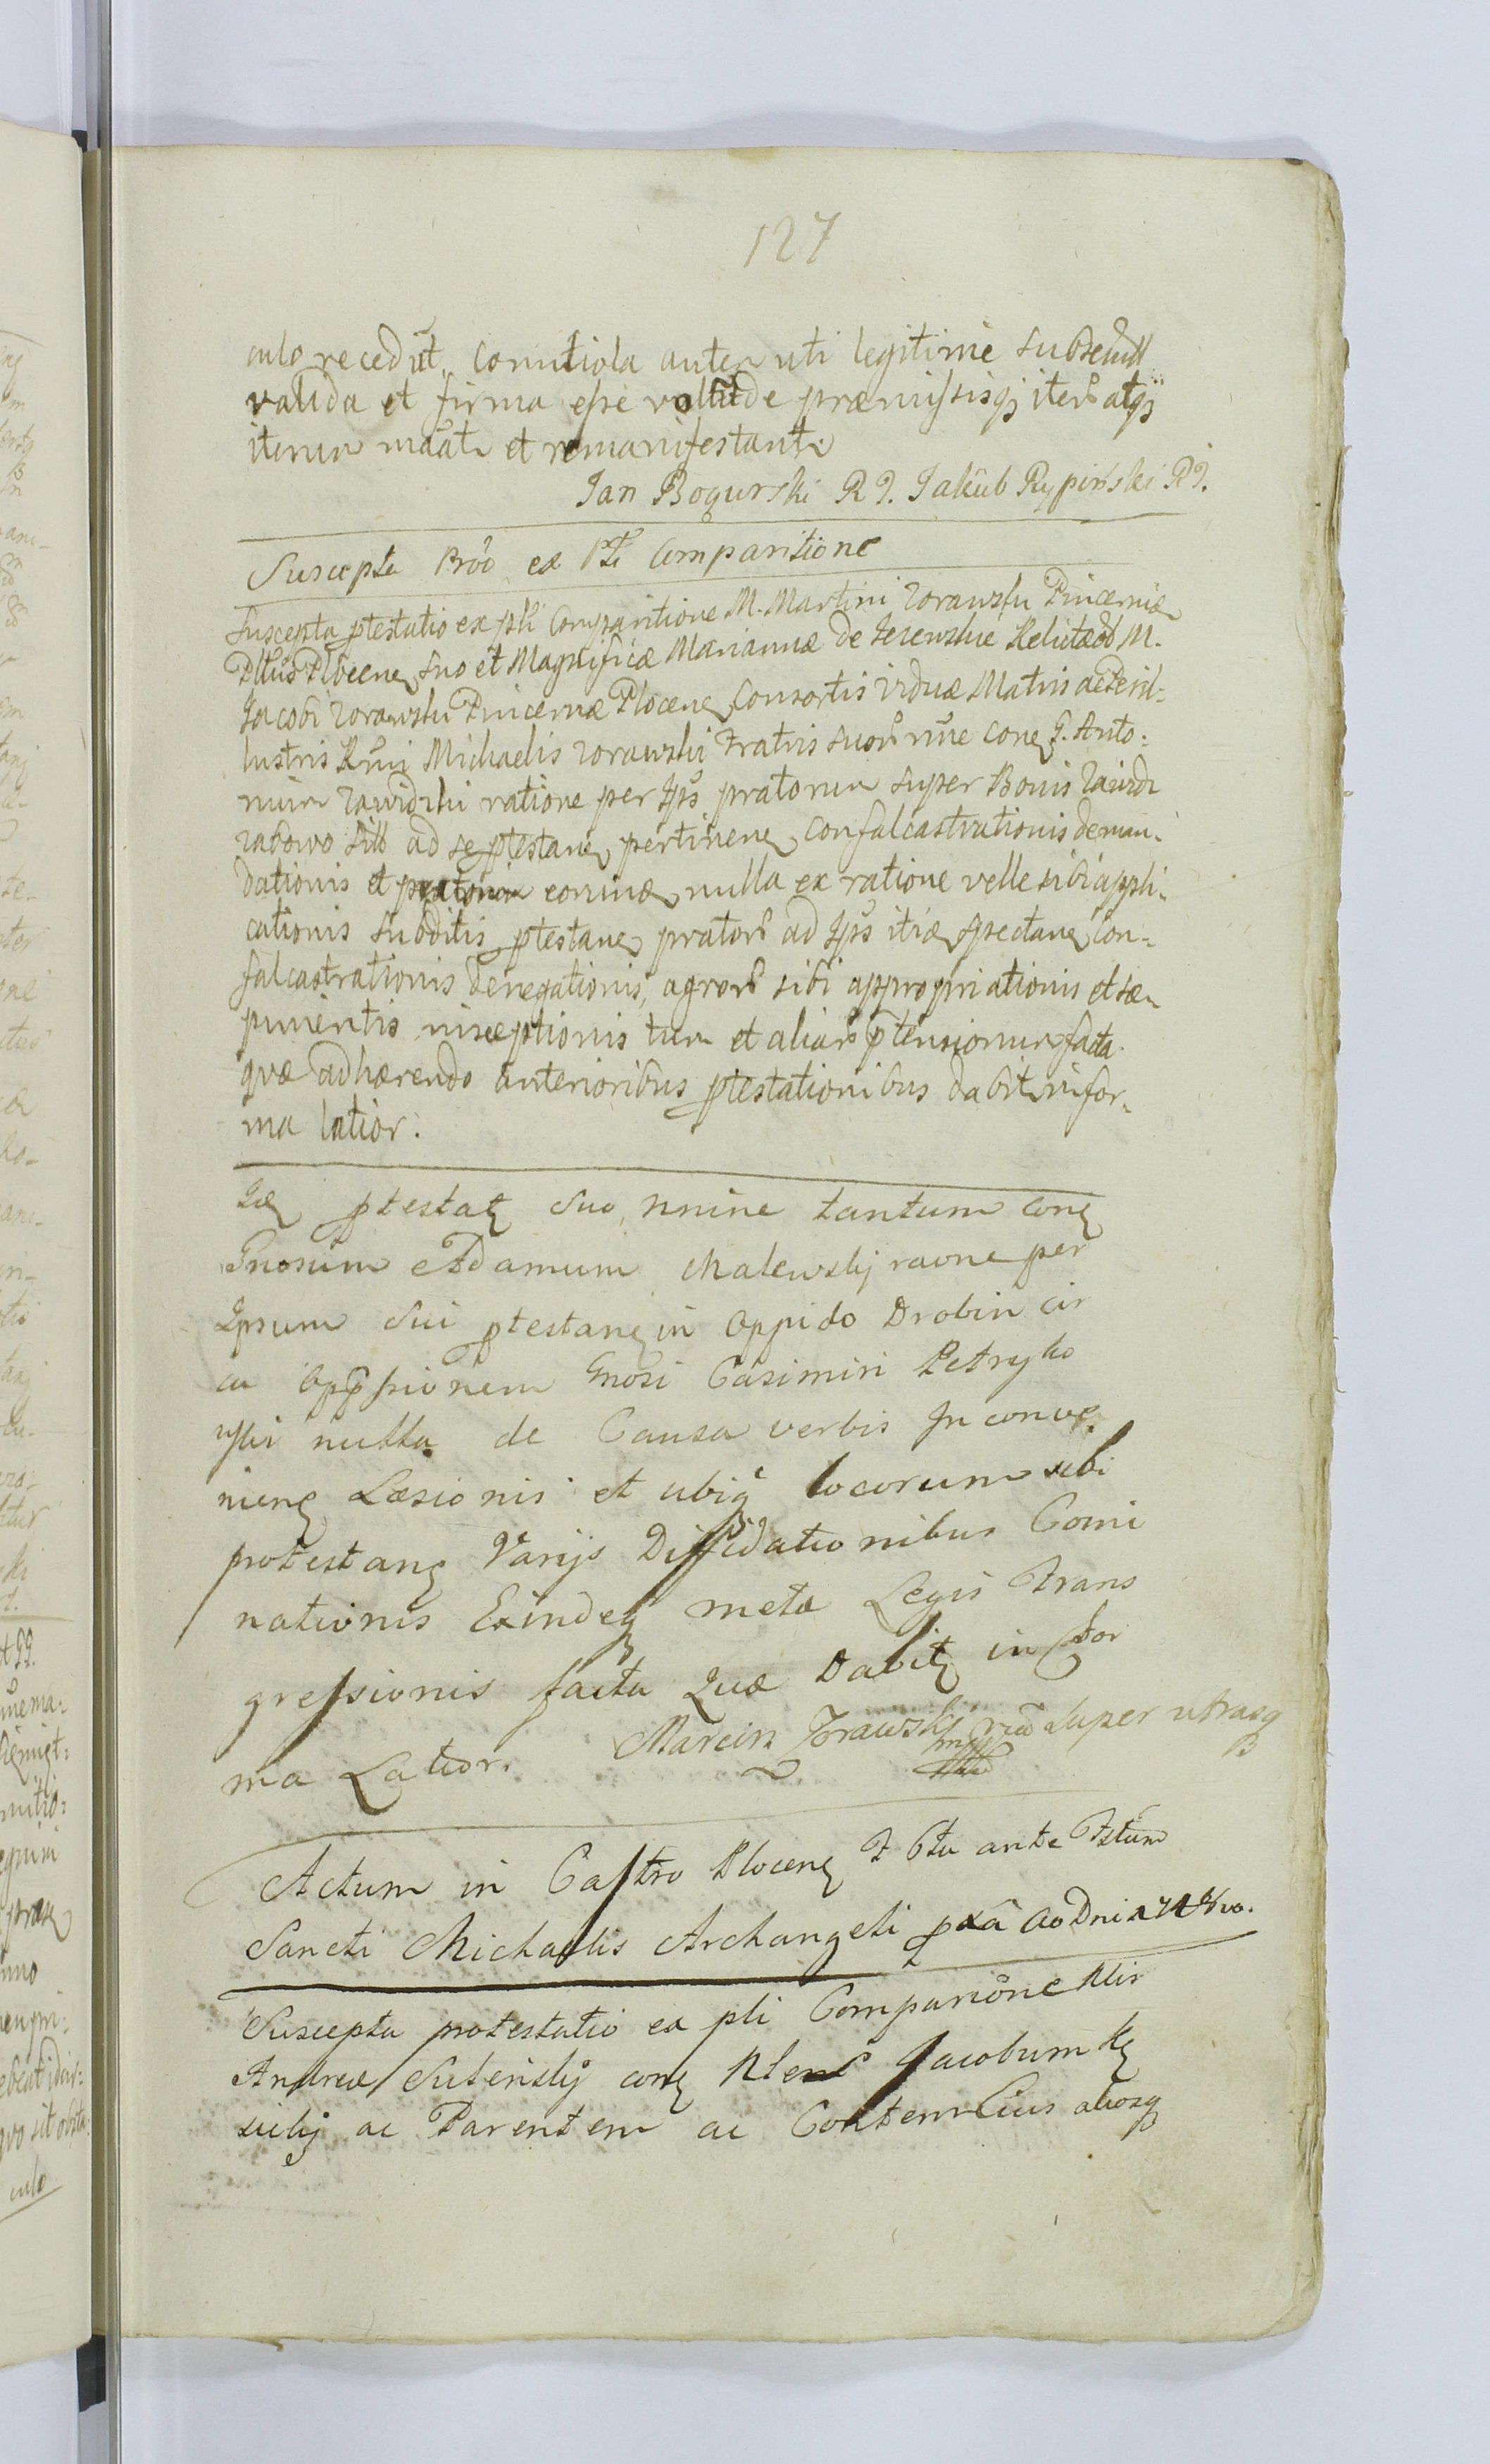 127
culo recedūt, Comitiola autem uti legitime
valida et firma esse voltūt de præmissisq iterō atq
iterum māāt et remanifestantr
Jan Bogurski R J. Jakub Rypiński R J.
Suscepta Prōō ex Ptī Comparitione
Suscepta ptestatio ex pli Comparitione M. Martini Zorawski Pincerniæ
Plocen suo et Magnificæ Mariannæ de Jezewskie Relictæ M.
Jacobi Zorawski Pincernæ Plocen Consortis viduæ Matris ac Peril-
lustris Michaelis Zorawski Fratris suorō nne con G. Anto-
nium Zawidzki ratione per Ips pratorum super Bonis
ad se ptestan pertinen confalcastrationis deman-
dationis et nulla ex ratione velle sibi appli-
cationis subditis ptestan pratorō ad Ips spectan Con-
falcastrationis denegationis, agrorō sibi appropriationis et sæ-
pimentis tum et aliarō ptensionum facta
quæ adhærendo anterioribus ptestationibus dabitr in for-
ma latior.
ptestat suo nnine tantum con
Gnosum Adamum Malewsky raone per
Ipsum sui ptestan in Oppido Drobin cir
ca Gnosi Casimiri Petryko
wski nulla de Causa verbis Inconve
nien Læsionis et ubiq locorum sibi
protestan Varijs Diffidationibus Comi
nationis Exindeq metæ Legis Trans
gressionis facta Quæ Dabit in For
ma Latior. Marcin Zorawski mp super utrasq
Actum in Castro Plocen F 6ta ante Fstum
Sancti Michaelis Archangeli pxā Ao Dni
Suscepta protestatio ex pli Comparione Nlis
Andreæ con Jacobum
ac Parentem ac aliosq